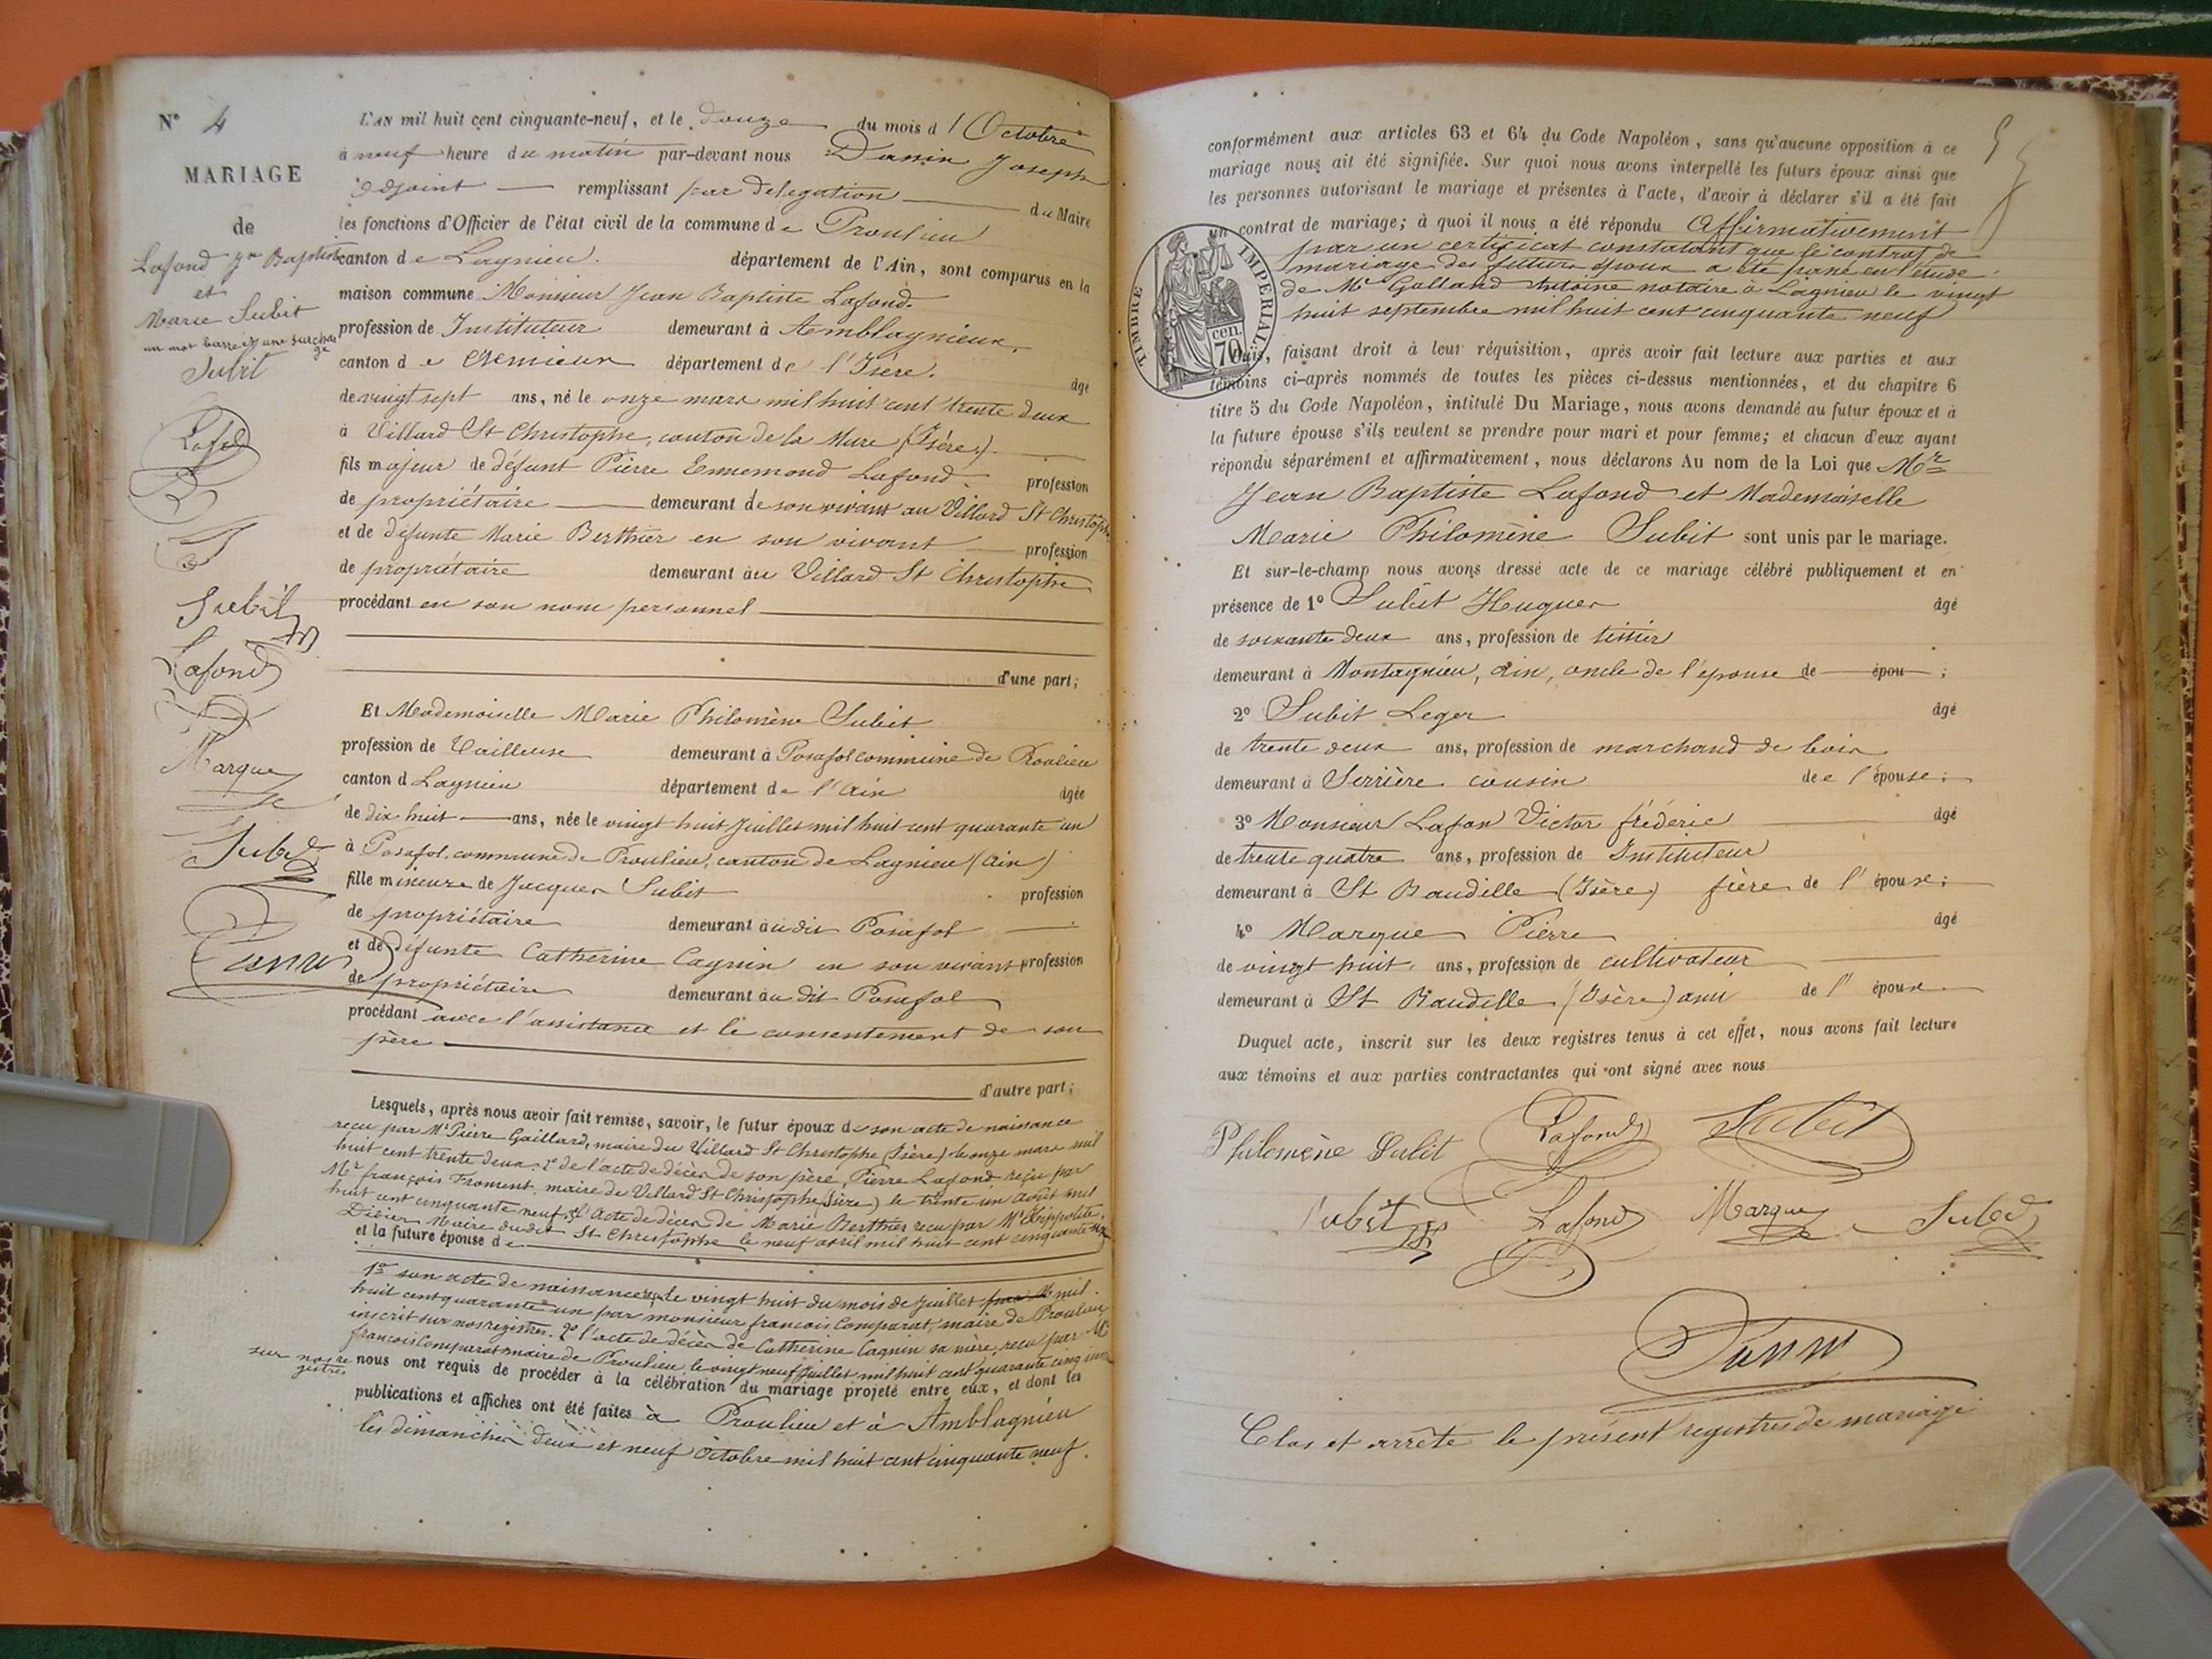 N° 4
MARIAGE
de
Lafond Jn Baptiste
et
Marie Subit
un mot barré et une surcharge
Subit
Lafond
Subit
Lafond
Marque
Subit
L'AN mil huit cent cinquante-neuf, et le douze du mois d'Octobre
à neuf heure du matin par-devant nous Joseph
adjoint remplissant par délégation du Maire
les fonctions d'Officier de l'état civil de la commune de Proulieu
canton de Lagnieu. département de l'Ain, sont comparus en la
maison commune Monsieur Jean Baptiste Lafond.
profession de Instituteur demeurant à Amblagnieux,
canton de Cremieux département de l'Isère. âgé
de vingt sept ans, né le onze mars mil huit cent trente deux
à Villard St Christophe, canton de la Mure (Isère).
fils majeur de défunt Pierre Ennemond Lafond. profession
de propriétaire demeurant de son vivant au Villard St Christophe
et de défunte Marie Berthier en son vivant profession
de propriétaire demeurant au Villard St Christophe
procédant en son nom personnel
d'une part;
Et Mademoiselle Marie Philomène Subit
profession de Tailleuse demeurant à Posafol commune de Proulieu
canton d Lagnieu département de l'Ain âgée
de dix huit ans, née le vingt huit Juillet mil huit cent quarante un
à Posafol, commune de Proulieu, canton de Lagnieu (Ain)
fille mineure de Jacques Subit profession
de propriétaire demeurant au dit Posafol
et de défunte Catherine Cagnin en son vivant profession
de propriétaire demeurant au dit Posafol
procédant avec l'assistance et le consentement de son
père
d'autre part;
Lesquels, après nous avoir fait remise, savoir, le futur époux de son acte de naissance
recu par Mr Pierre Gaillard, maire du Villard St Christophe (Isère) le onze mars mil
huit cent trente deux. 2° de l'acte de décès de son père, Pierre Lafond reçu par
Mr françois Froment, maire de Villard St Christophe (Isère) le trente un août mil
huit cent cinquante neuf, 3° l'acte de décès de Marie Berthier recu par Mr Hippolite
Didier Maire dudit St Christophe le neuf avril mil huit cent cinquante
et la future épouse de
1° son acte de naissance reçu le vingt huit du mois de Juillet mil
huit cent quarante un par monsieur françois Comparat, maire de Proulieu
inscrit sur nos registres. 2° l'acte de décès de Catherine Cagnin sa mère, recu par Mr
françois Comparat maire de Proulieu le vingt neuf Juillet mil huit cent quarante cinq
sur nos registres nous ont requis de procéder à la célébration du mariage projeté entre eux, et dont les
publications et affiches ont été faites à Proulieu et à Amblagnieu
les dimanches deux et neuf Octobre mil huit cent cinquante neuf.
conformément aux articles 63 et 64 du Code Napoléon, sans qu'aucune opposition à ce
mariage nous ait été signifiée. Sur quoi nous avons interpellé les futurs époux ainsi que
les personnes autorisant le mariage et présentes à l'acte, d'avoir à déclarer s'il a été fait
un contrat de mariage; à quoi il nous a été répondu Affirmativement
par un certificat constatant que le contrat de
mariage des futurs époux a été passé en l'étude
de Mr Galland Antoine notaire à Lagnieu le vingt
huit septembre mil huit cent cinquante neuf
TIMBRE IMPÉRIAL
70 cen.
Ouïs, faisant droit à leur réquisition, après avoir fait lecture aux parties et aux
témoins ci-après nommés de toutes les pièces ci-dessus mentionnées, et du chapitre 6
titre 5 du Code Napoléon, intitulé Du Mariage, nous avons demandé au futur époux et à
la future épouse s'ils veulent se prendre pour mari et pour femme; et chacun d'eux ayant
répondu séparément et affirmativement, nous déclarons Au nom de la Loi que Mr
Jean Baptiste Lafond et Mademoiselle
Marie Philomène Subit sont unis par le mariage.
Et sur-le-champ nous avons dressé acte de ce mariage célébré publiquement et en
présence de 1° Subit Hugues âgé
de soixante deux ans, profession de
demeurant à Montagnieu, Ain, oncle de l'épouse de épou ;
2° Subit Leger âgé
de trente deux ans, profession de marchand de bois
demeurant à Serrière cousin de l'épouse;
3° Monsieur Lafon Victor frédéric âgé
de trente quatre ans, profession de Instituteur
demeurant à St Baudille (Isère) frère de l'époux;
4° Marque Pierre âgé
de vingt huit ans, profession de cultivateur
demeurant à St Baudille (Isère) ami de l'époux
Duquel acte, inscrit sur les deux registres tenus à cet effet, nous avons fait lecture
aux témoins et aux parties contractantes qui ont signé avec nous
Philomène Subit Lafond Subit
Subit Lafond Marque Subit
Clos et arrêté le présent registres de mariage